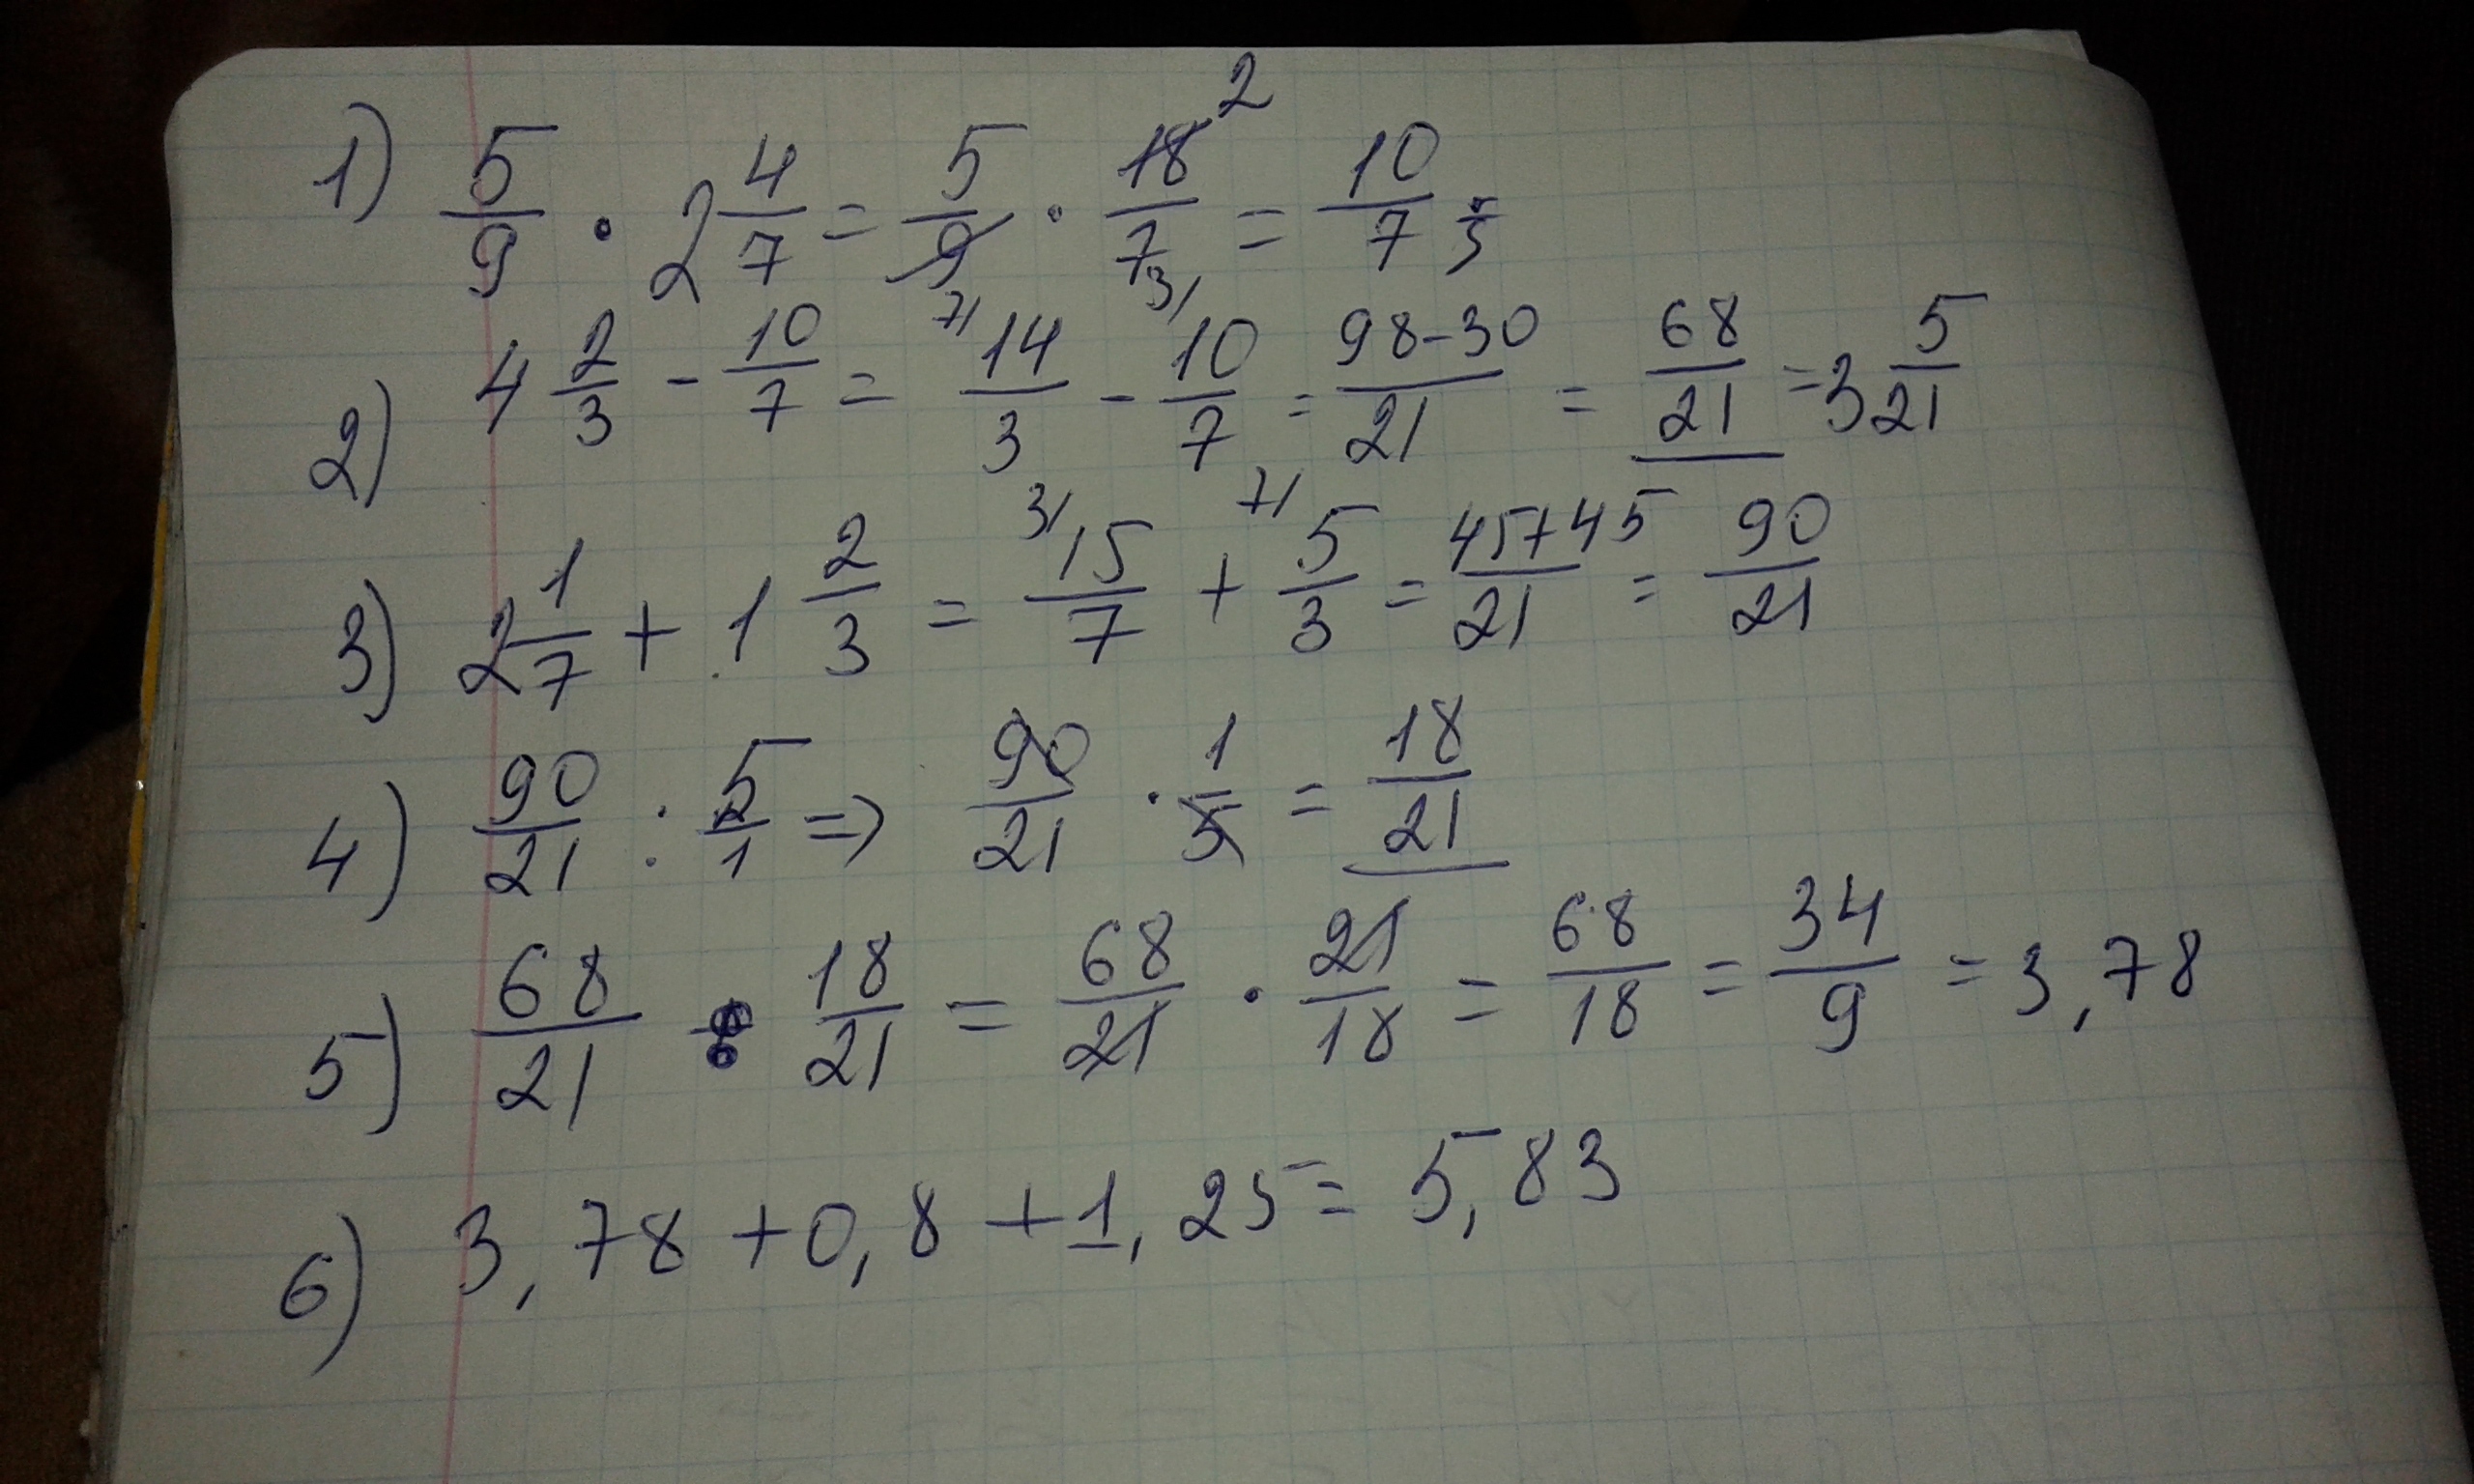 1) 5/9 · 2 4/7 = 5/9 · 18/7 2 = 10/7;
2) 4 2/3 - 10/7 = 7/ 14/3 - 3/ 10/7 = 98-30/21 = 68/21 = 3 5/21
3) 2 1/7 + 1 2/3 = 3/ 15/7 + 7/ 5/3 = 45+45/21 = 90/21
4) 90/21 : 5/1 => 90/21 · 1/5 = 18/21
5) 68/21 : 18/21 = 68/21 · 21/18 = 68/18 = 34/9 = 3,78
6) 3,78 + 0,8 + 1,25 = 5,83